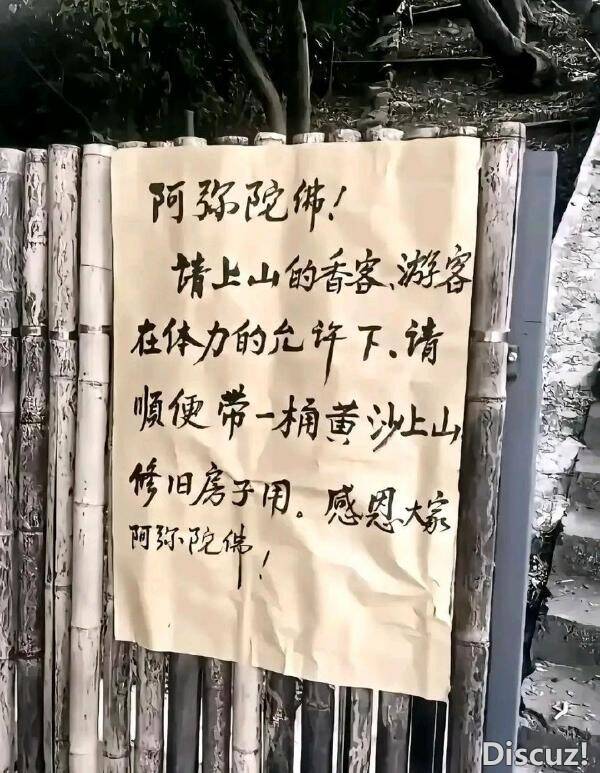 阿弥陀佛！
请上山的香客、游客
在体力的允许下、请
顺便带一桶黄沙上山
修旧房子用。感恩大家
阿弥陀佛！
Discuz!